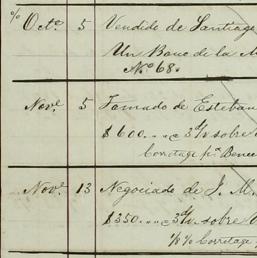 % Octe 5 Vendido de Santiago
Un Bono de la M
No 68.
Nove 5 Tomado de Esteban
$600....@ 3d/v sobre
Corretage pa
Nove 13 Negociado de J. M.
$350....@ 3d/v sobre
1/8 % Corretage